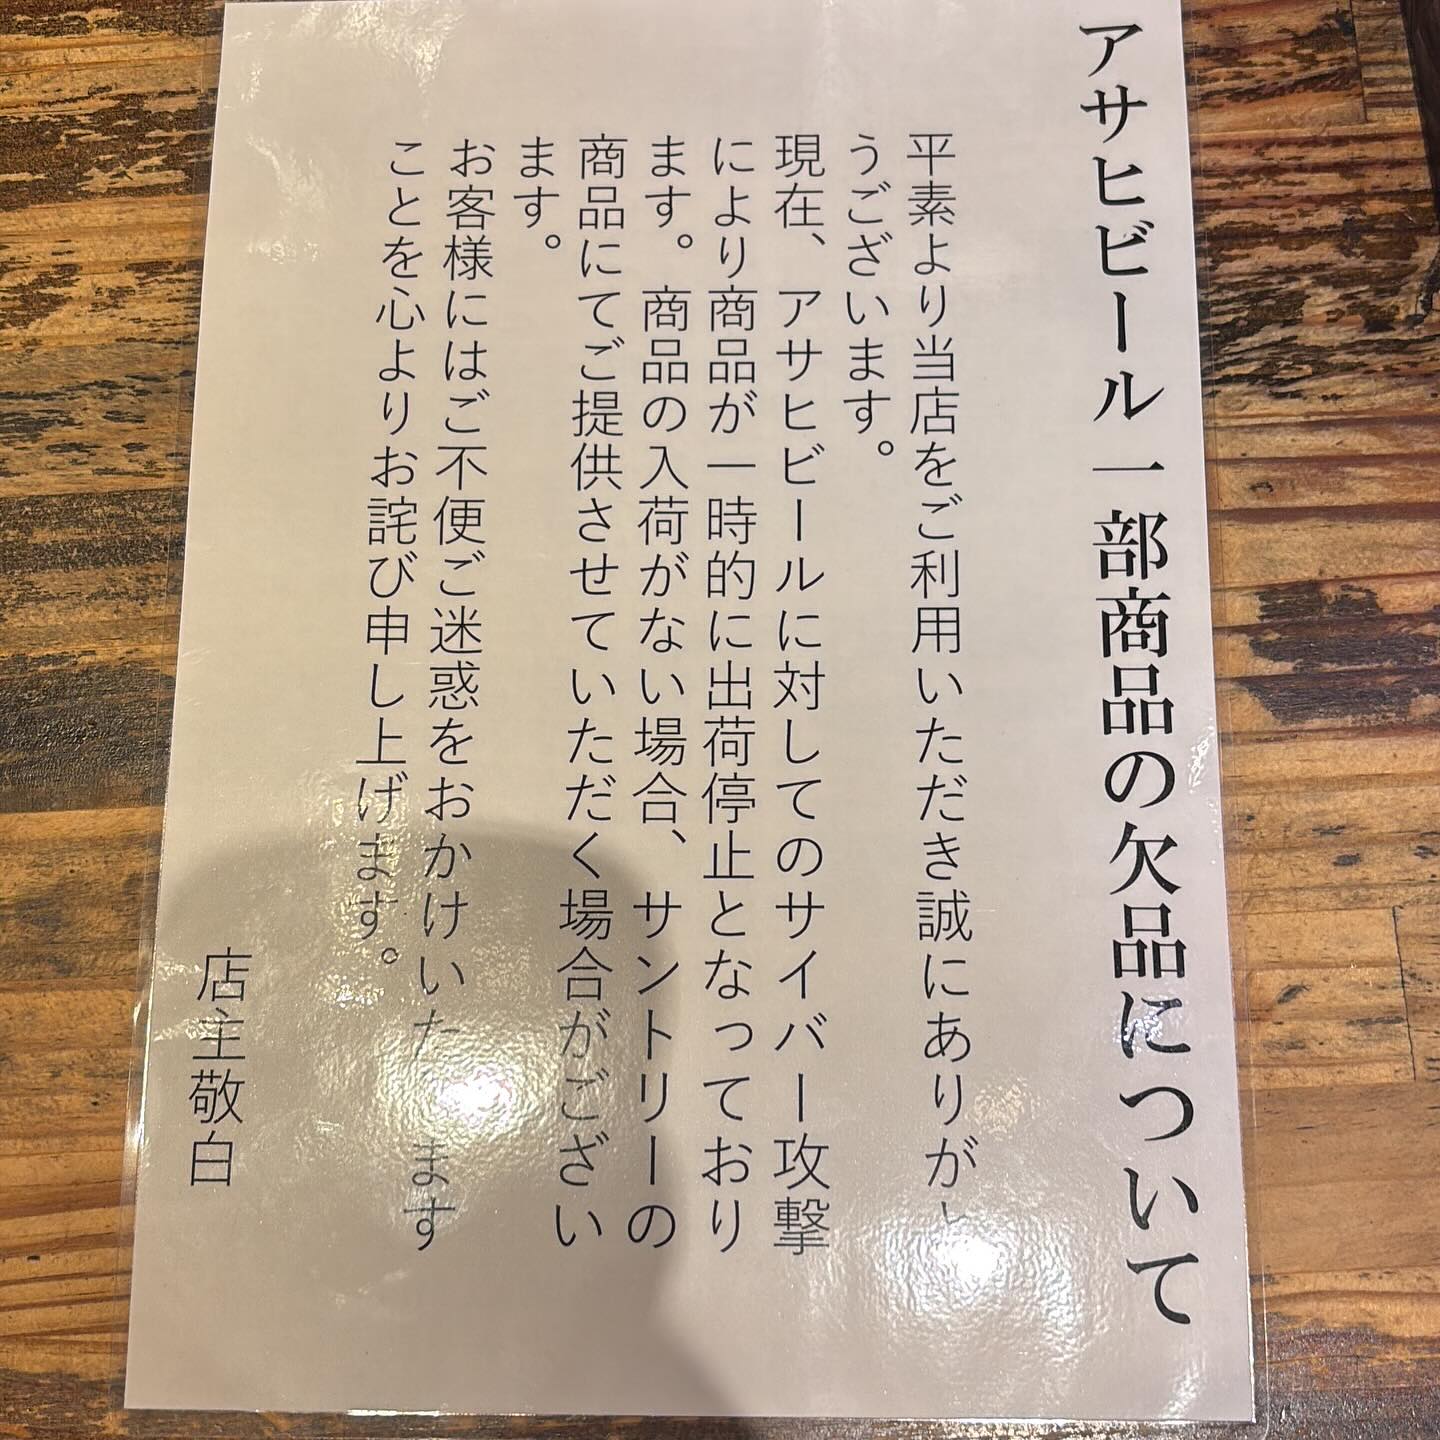 アサヒビール一部商品の欠品について
平素より当店をご利用いただき誠にありがと
うございます。
現在、アサヒビールに対してのサイバー攻撃
により商品が一時的に出荷停止となっており
ます。商品の入荷がない場合、サントリーの
商品にてご提供させていただく場合がござい
ます。
お客様にはご不便ご迷惑をおかけいたします
ことを心よりお詫び申し上げます。
店主敬白